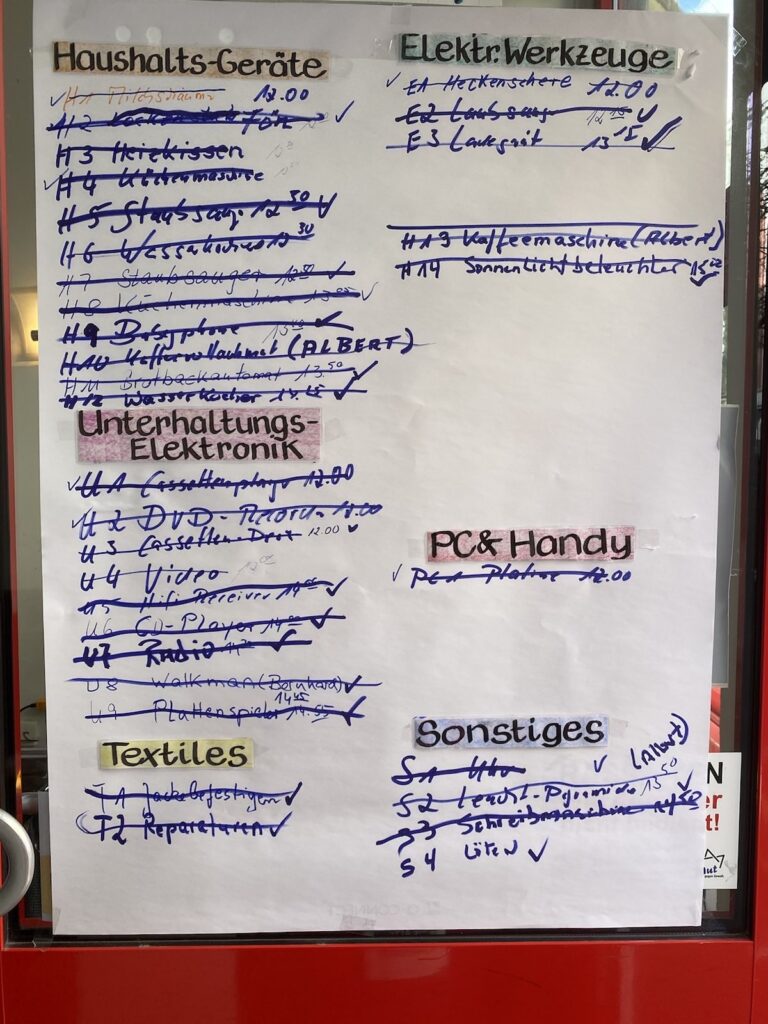 Haushalts-Geräte
H1 12.00
H2 Fön
H3 Heizkissen
H4 Küchenmaschine
H5 Staubsaug. 12 30
H6 Wasserkocher 12 30
H7 Staubsauger 12
H8 Küchenmaschine 13
H9 Babyphone 13
H10 Kaffeevollautomat (ALBERT)
H11 Brotbackautomat 13.50
H12 Wasserkocher
Unterhaltungs-
Elektronik
U1 12.00
U2 DVD-
U3 Cassetten- 12.00
U4 Video
U5 Hifi Receiver 14
U6 CD-Player 14
U7 Radio
U8 Walkman (Bernhard)
14 45
U9 Plattenspieler 14.55
Textiles
T1 Jacke befestigen
T2 Reparaturen
Elektr. Werkzeuge
E1 Heckenschere 12.00
E2 Laubsaug
E3 Ladegrät 13 15
H13 Kaffeemaschine (Albert)
H14 Sonnenlichtbeleuchter 15
PC & Handy
PC1 Platine 12.00
Sonstiges
S1 Uhr
(Albert)
S2 Leucht-Pyramide 13 50
S3 Schreibmaschine 14 50
S4 Löten
N
er
t!